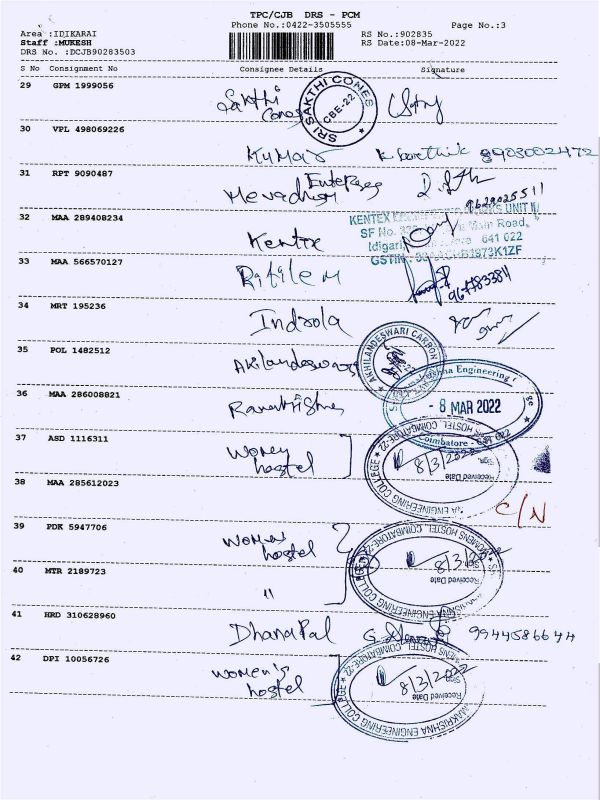 TPC/CJB DRS - PCM
Phone No.:0422-3505555 Page No.:3
Area :IDIKARAI RS No.:902835
Staff :MUKESH RS Date:08-Mar-2022
DRS No. :DCJB90283503
S No Consignment No Consignee Details Signature
29 GPM 1999056 Sakthi Cones
SRI SAKTHI CONES CBE-22
30 VPL 498069226 Kumar
31 RPT 9090487
9629025511
32 MAA 289408234 Kentex
KENTEX UNIT II
SF No. Main Road,
Idigarai 641 022
GSTIN
33 MAA 566570127
34 MRT 195236 Indrola
35 POL 1482512 Akilandeswari
AKHILANDESWARI CARBON
36 MAA 286008821
Engineering
- 8 MAR 2022
Coimbatore - 641 022
37 ASD 1116311 Women hostel
ENGINEERING COLLEGE HOSTEL COIMBATORE-22
8/3/2022
Sign.
Received Date
38 MAA 285612023 C/N
39 PDK 5947706 Women hostel
KRISHNA ENGINEERING COLLEGE WOMENS HOSTEL COIMBATORE-22
8/3/2022
Received Date
40 MTR 2189723 "
41 HRD 310628960 DhanaPal 9944586644
42 DPI 10056726 women's hostel
MAKRISHNA ENGINEERING COLLEGE WOMENS HOSTEL COIMBATORE-22
8/3/2022
Sign.
Received Date